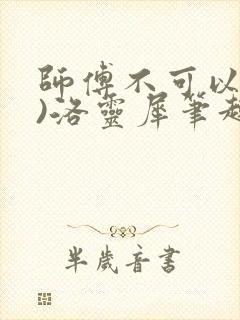 師傅不可以
)洛靈犀筆趣
半歲音書